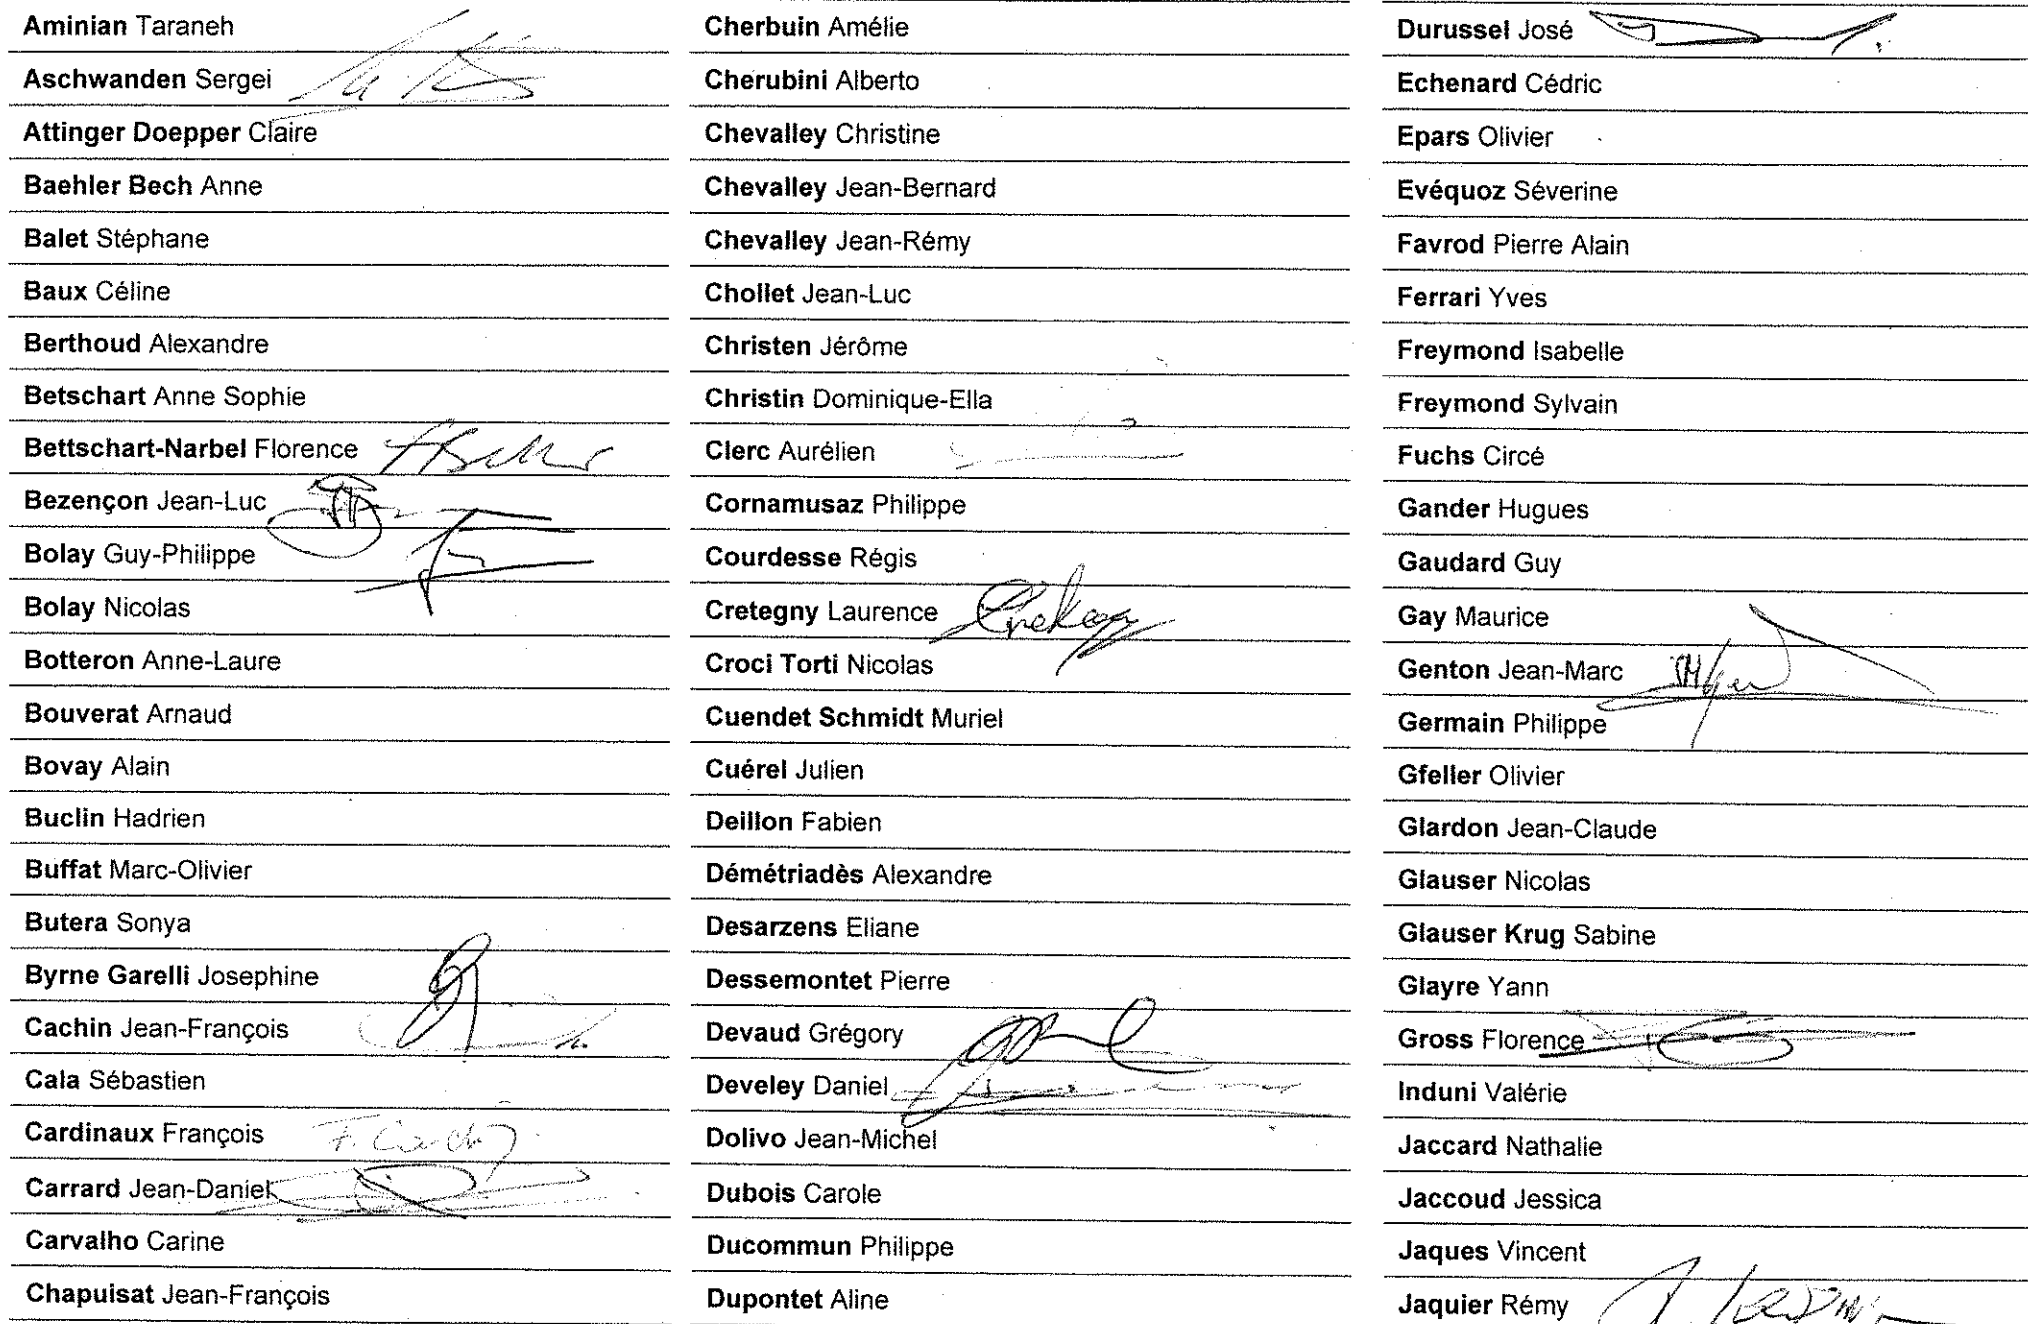 Aminian Taraneh
Aschwanden Sergei
Attinger Doepper Claire
Baehler Bech Anne
Balet Stéphane
Baux Céline
Berthoud Alexandre
Betschart Anne Sophie
Bettschart-Narbel Florence
Bezençon Jean-Luc
Bolay Guy-Philippe
Bolay Nicolas
Botteron Anne-Laure
Bouverat Arnaud
Bovay Alain
Buclin Hadrien
Buffat Marc-Olivier
Butera Sonya
Byrne Garelli Josephine
Cachin Jean-François
Cala Sébastien
Cardinaux François
Carrard Jean-Daniel
Carvalho Carine
Chapuisat Jean-François
Cherbuin Amélie
Cherubini Alberto
Chevalley Christine
Chevalley Jean-Bernard
Chevalley Jean-Rémy
Chollet Jean-Luc
Christen Jérôme
Christin Dominique-Ella
Clerc Aurélien
Cornamusaz Philippe
Courdesse Régis
Cretegny Laurence
Croci Torti Nicolas
Cuendet Schmidt Muriel
Cuérel Julien
Deillon Fabien
Démétriadès Alexandre
Desarzens Eliane
Dessemontet Pierre
Devaud Grégory
Develey Daniel
Dolivo Jean-Michel
Dubois Carole
Ducommun Philippe
Dupontet Aline
Durussel José
Echenard Cédric
Epars Olivier
Evéquoz Séverine
Favrod Pierre Alain
Ferrari Yves
Freymond Isabelle
Freymond Sylvain
Fuchs Circé
Gander Hugues
Gaudard Guy
Gay Maurice
Genton Jean-Marc
Germain Philippe
Gfeller Olivier
Glardon Jean-Claude
Glauser Nicolas
Glauser Krug Sabine
Glayre Yann
Gross Florence
Induni Valérie
Jaccard Nathalie
Jaccoud Jessica
Jaques Vincent
Jaquier Rémy